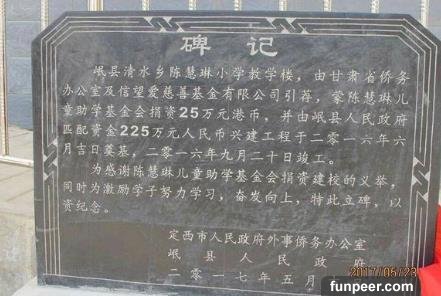 碑记
岷县清水乡陈慧琳小学教学楼，由甘肃省侨务
办公室及信望爱慈善基金有限公司引荐，蒙陈慧琳儿
童助学基金会捐资25万元港币，并由岷县人民政府
匹配资金225万元人民币兴建工程于二零一六年六
月吉日奠基，二零一六年九月二十日竣工。
为感谢陈慧琳儿童助学基金会捐资建校的义举，
同时为激励学子努力学习，奋发向上，特此立碑，以
资纪念。
定西市人民政府外事侨务办公室
岷县人民政府
二零一七年五月
2017/05/23
funpeer.com